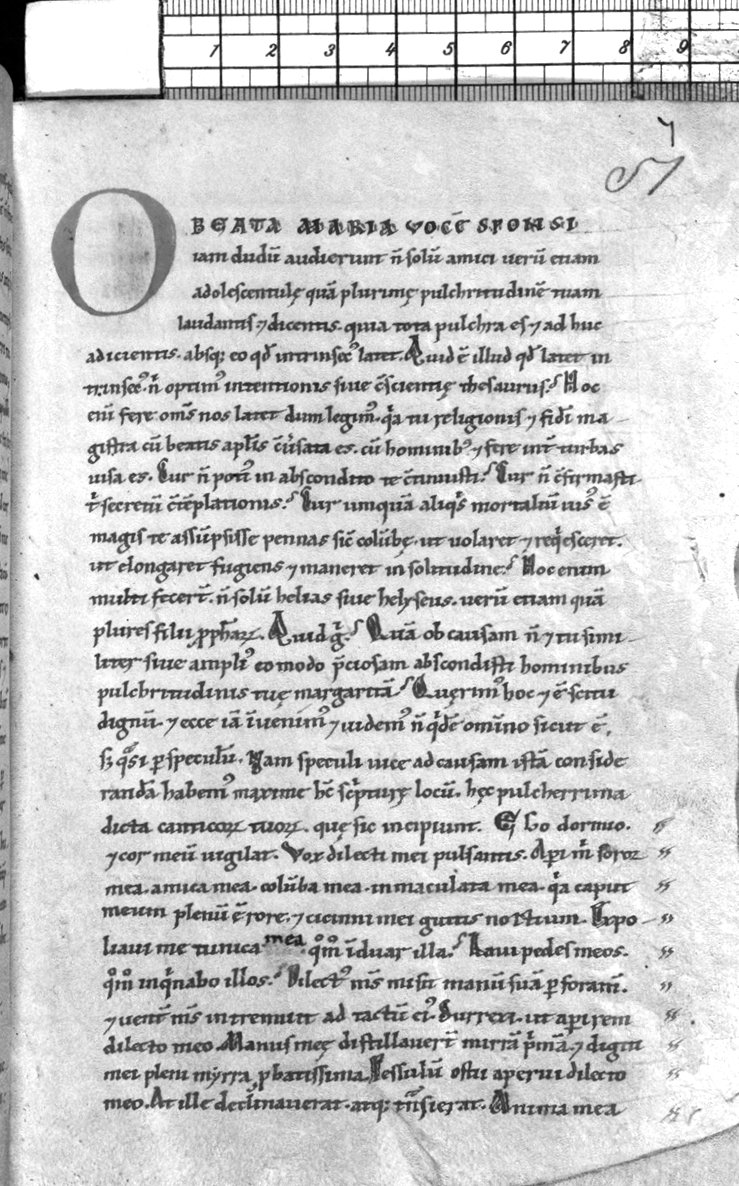 1 2 3 4 5 6 7 8 9
7
57
O BEATA MARIA VOCĒ SPONSI
iam dudū audierunt n̄ solū amici uerū etiam
adolescentulę quā plurimę pulchritudinē tuam
laudantis ⁊ dicentis. quia tota pulchra es ⁊ ad huc
adicientis. absq; eo qd̄ intrinsecꝰ latet. Quid ē illud qd̄ latet in
trinsecꝰ. n̄ optimꝰ intentionis siue c̄scientię thesaurus? Hoc
eni fere om̄s nos latet dum legimꝰ. qͣa tu religionis ⁊ fidi ma
gistra cū beatis apl̄is c̄uersata es. cū hominibꝰ ⁊ fere int̄ turbas
uisa es. Cur n̄ potiꝰ in abscondito te c̄tinuisti? Cur n̄ c̄firmasti
t̄ secretū c̄tēplationis? Cur umquā aliqͥs mortaliū uisꝰ ē
magis te assūpsisse pennas sic̄ colūbę. ut uolaret ⁊ reqͥesceret.
ut elongaret fugiens ⁊ maneret in solitudine? Hoc enim
multi fecer̄t. n̄ solū helias siue helyseus. uerū etiam quā
plures filii ꝓph̄aꝝ. Quid gͦ? Quā ob causam n̄ ⁊ tu simi
liter siue ampliꝰ eo modo p̄ciosam abscondisti hominibus
pulchritudinis tuę margaritā? Quęrimꝰ hoc ⁊ ē scitu
dignū. ⁊ ecce iā īuenimꝰ ⁊ uidemꝰ n̄ qͥdē omīno sicut ē.
sꝫ qͣsi ꝑ speculū. Nam speculi uice ad causam istā conside
randā habemꝰ maxime hc̄ scͥpturę locū. hęc pulcherrima
dicta canticoꝝ tuoꝝ. quę sic incipiunt. Ego dormio.
⁊ cor meū uigilat. Vox dilecti mei pulsantis. Aperi m̄ soror
mea. amica mea. colūba mea. inmaculata mea. qͣa caput
meum plenū ē rore. ⁊ cicinni mei guttis noctium. Expo
liaui me tunica mea. qͦmͦ īduar illa? Laui pedes meos.
qͦmͦ inqͥnabo illos? Dilectꝰ m̄s misit manū suā ꝑ foram̄.
⁊ uent̄ m̄s intremuit ad tactū eiꝰ. Surrexi. ut aꝑirem
dilecto meo. Manus meę distillauer̄t mirrā pͥmā. ⁊ digiti
mei pleni myrra ꝓbatissima. Pessulū ostii aperui dilecto
meo. At ille declinauerat. atq; tn̄sierat. Anima mea